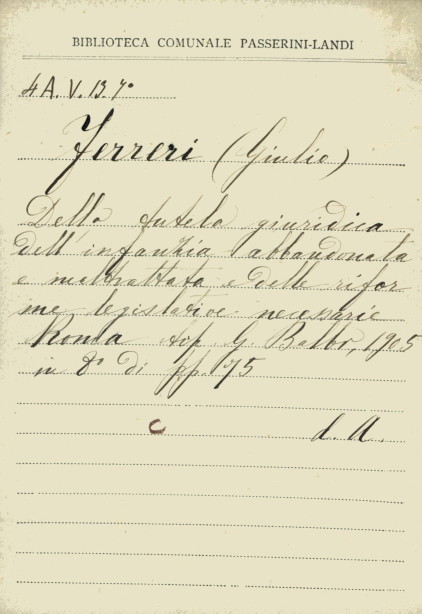 BIBLIOTECA COMUNALE PASSERINI-LANDI
4 A. V. 13. 7º
Ferreri (Giulio)
Della tutela giuridica
dell'infanzia abbandonata
e maltrattata e delle rifor
me legislative necessarie
Roma tip. G. Balbi, 1905
in 8º di pp. 75
d. A.